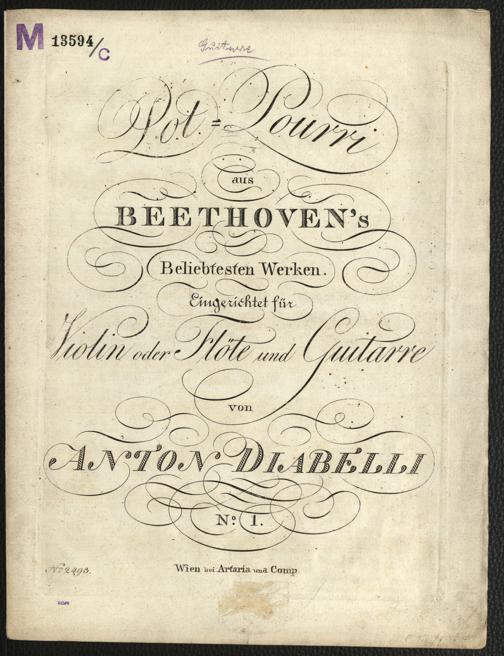 M 13594/C
Guitarre
Pot=Pourri
aus
BEETHOVEN's
Beliebtesten Werken.
Eingerichtet für
Violin oder Flöte und Guitarre
von
ANTON DIABELLI
No. 1.
No 2293.
Wien bei Artaria und Comp.